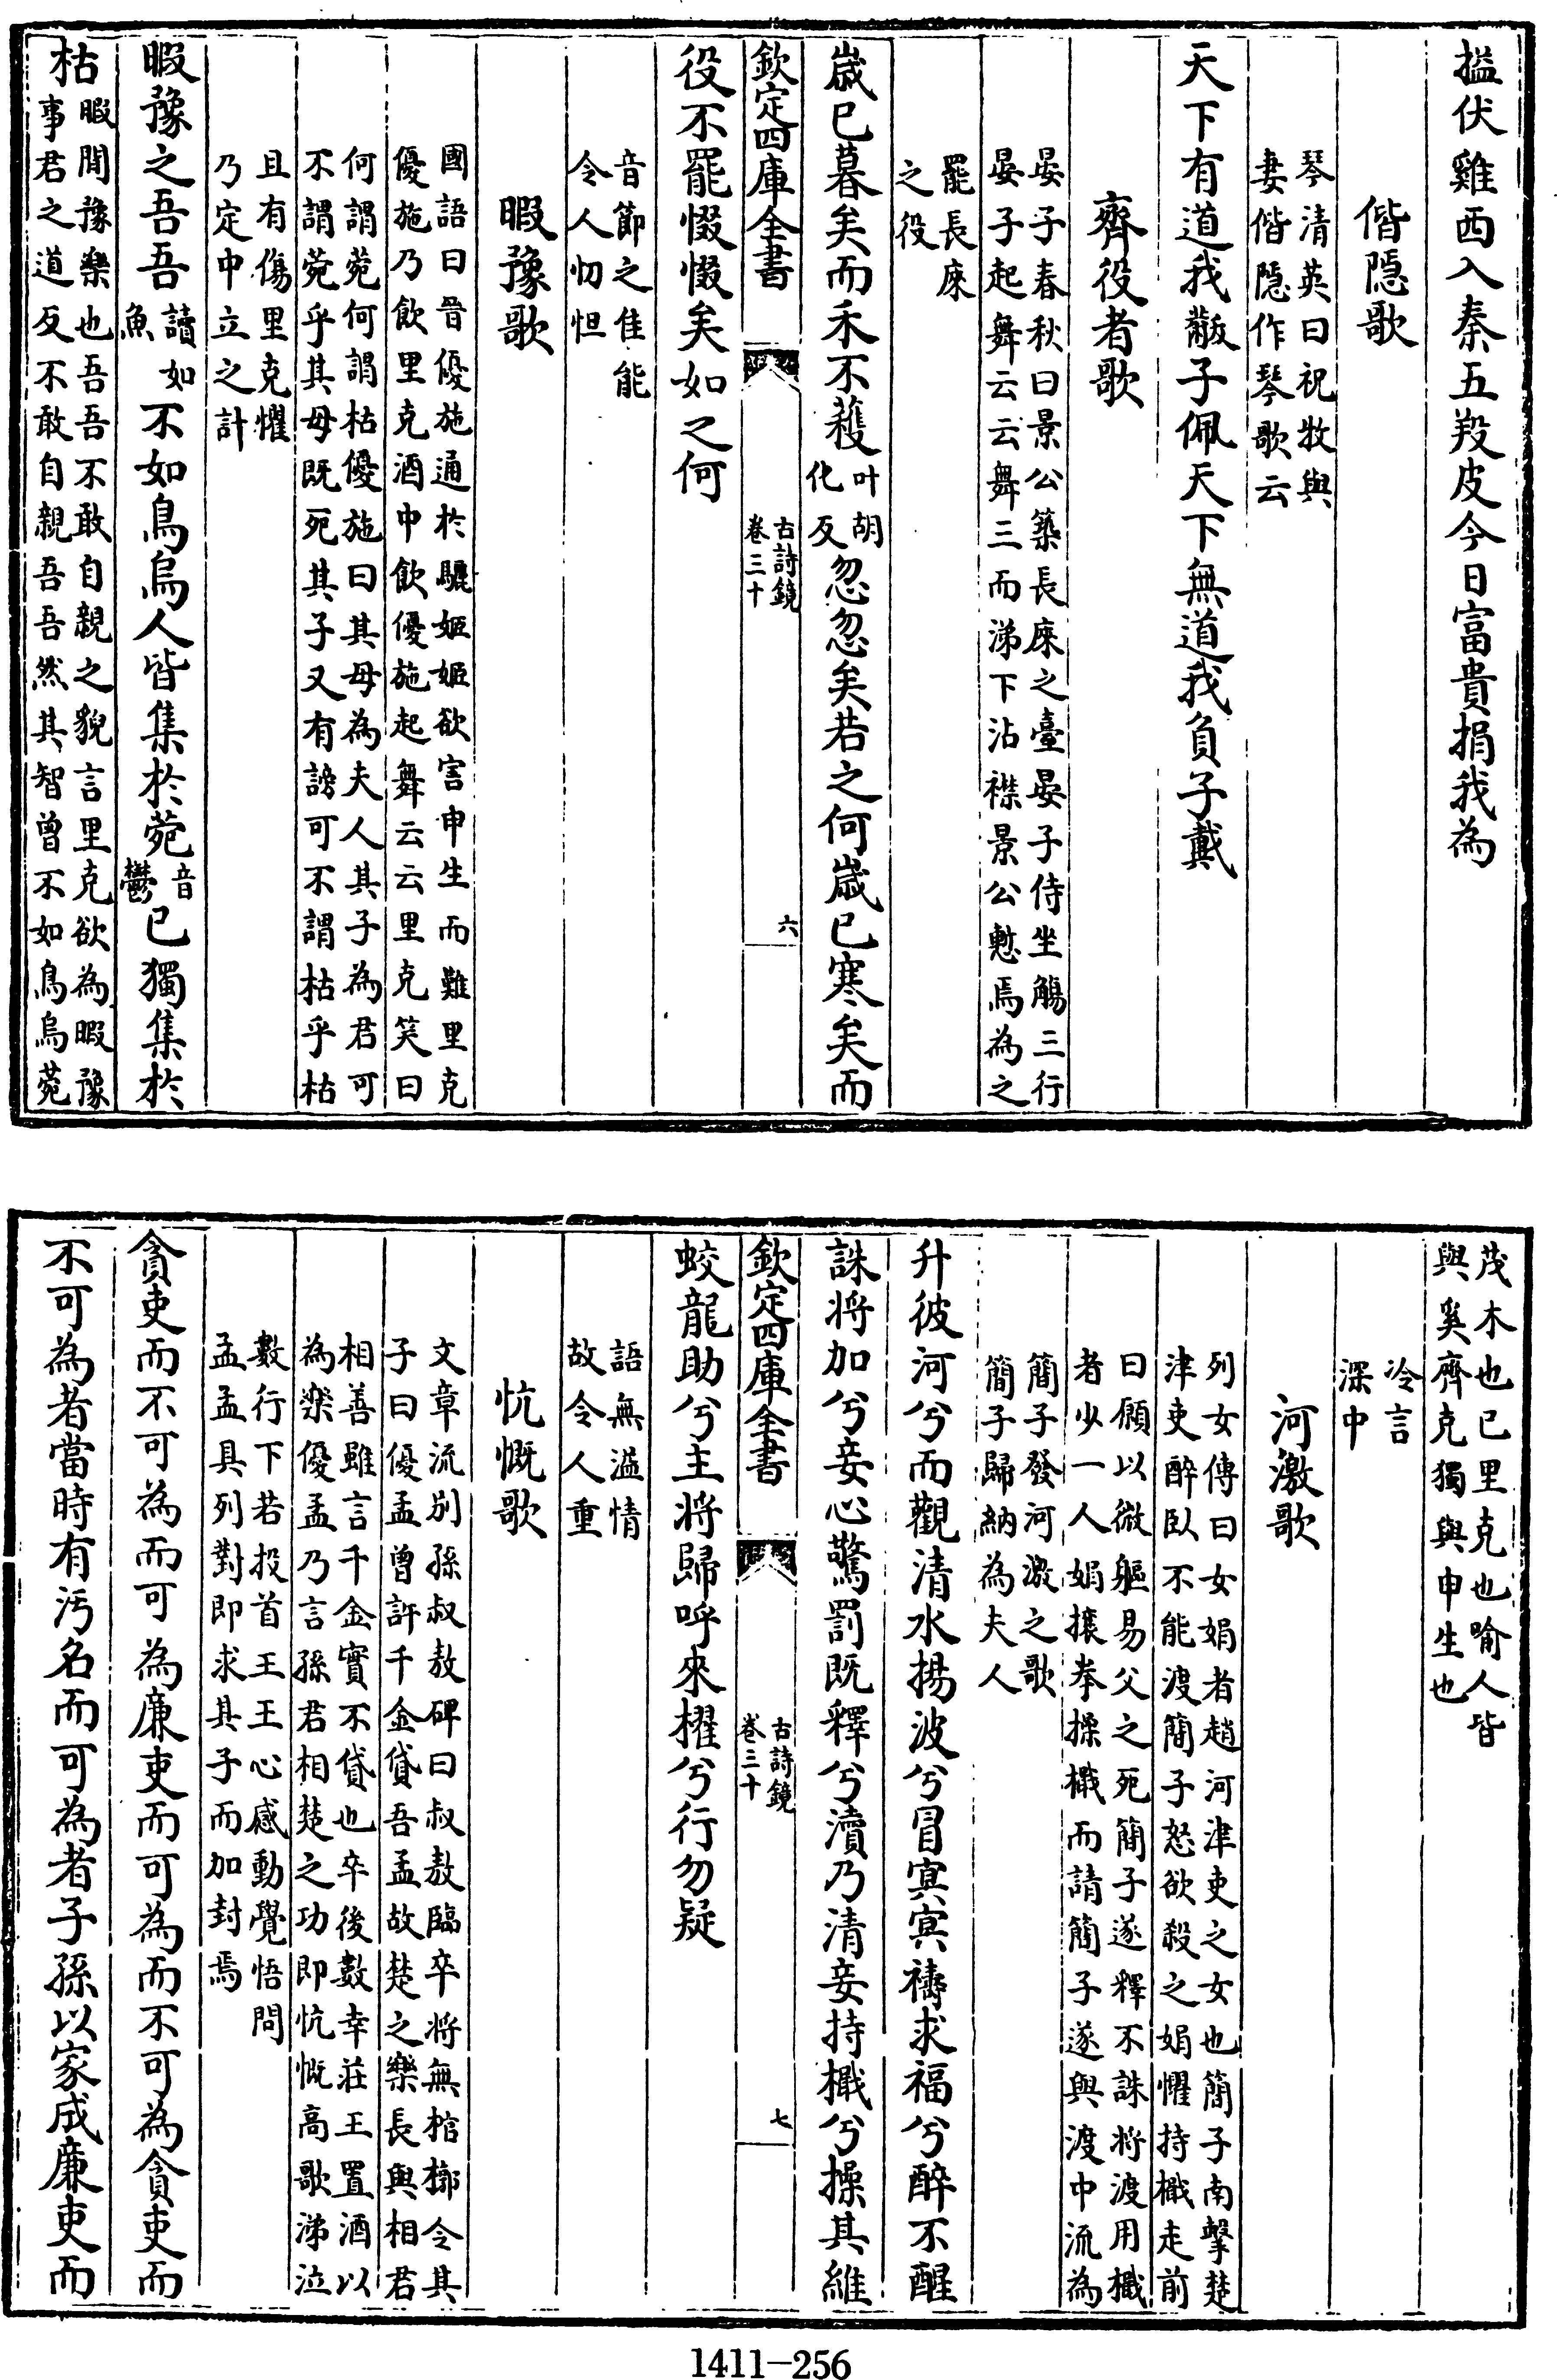 搵伏雞西入秦五羖皮今日富貴捐我為
偕隱歌
琴清英曰祝牧與
妻偕隱作琴歌云
天下有道我黻子佩天下無道我負子戴
齊役者歌
晏子春秋曰景公築長庲之臺晏子侍坐觴三行
晏子起舞云云舞三而涕下沾襟景公慙焉為之
罷長庲
之役
歲已暮矣而禾不穫叶胡
化反忽忽矣若之何歲已寒矣而
欽定四庫全書
古詩鏡
卷三十
六
役不罷惙惙矣如之何
音節之佳能
令人忉怛
暇豫歌
國語曰晉優施通於驪姬姬欲害申生而難里克
優施乃飲里克酒中飲優施起舞云云里克笑曰
何謂菀何謂枯優施曰其母為夫人其子為君可
不謂菀乎其母既死其子又有謗可不謂枯乎枯
且有傷里克懼
乃定中立之計
暇豫之吾吾讀如
魚不如鳥烏人皆集於菀音
鬱已獨集於
枯暇閒豫樂也吾吾不敢自親之貌言里克欲為暇豫
事君之道反不敢自親吾吾然其智曾不如鳥烏菀
茂木也已里克也喻人皆
與奚齊克獨與申生也
冷言
深中
河激歌
列女傳曰女娟者趙河津吏之女也簡子南擊楚
津吏醉臥不能渡簡子怒欲殺之娟懼持檝走前
曰願以微軀易父之死簡子遂釋不誅將渡用檝
者少一人娟攘拳操檝而請簡子遂與渡中流為
簡子發河激之歌
簡子歸納為夫人
升彼河兮而觀清水揚波兮冒冥冥禱求福兮醉不醒
誅將加兮妾心驚罰既釋兮瀆乃清妾持檝兮操其維
欽定四庫全書
古詩鏡
卷三十
七
蛟龍助兮主將歸呼來櫂兮行勿疑
語無溢情
故令人重
忼慨歌
文章流別孫叔敖碑曰叔敖臨卒將無棺槨令其
子曰優孟曾許千金貸吾孟故楚之樂長與相君
相善雖言千金實不貸也卒後數年莊王置酒以
為樂優孟乃言孫君相楚之功即忼慨高歌涕泣
數行下若投首王王心感動覺悟問
孟孟具列對即求其子而加封焉
貪吏而不可為而可為廉吏而可為而不可為貪吏而
不可為者當時有汚名而可為者子孫以家成廉吏而
1411—256